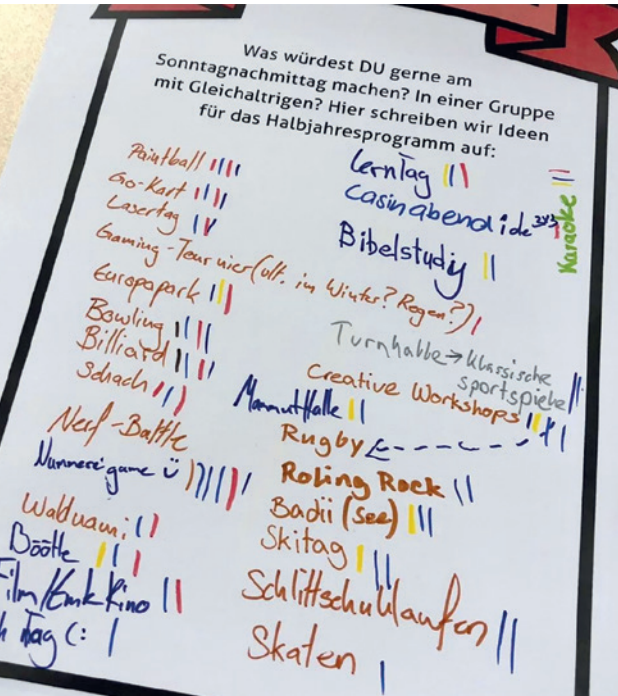 Was würdest DU gerne am
Sonntagnachmittag machen? In einer Gruppe
mit Gleichaltrigen? Hier schreiben wir Ideen
für das Halbjahresprogramm auf:
Paintball
Go-Kart
Lasertag
Gaming-Tournier (ult. im Winter? Regen?)
Europapark
Bowling
Billiard
Schach
Nerf-Battle
Nummerégame ü
Böötle
Film/ Kino
Tag (:
LernTag
Casinabend
Bibelstudiy
Karaoke
Turnhalle → Klassische
sportspiele
Creative Workshops
MammutHalle
Rugby
Roling Rock
Badii (See)
Skitag
Schlittschuhlaufen
Skaten